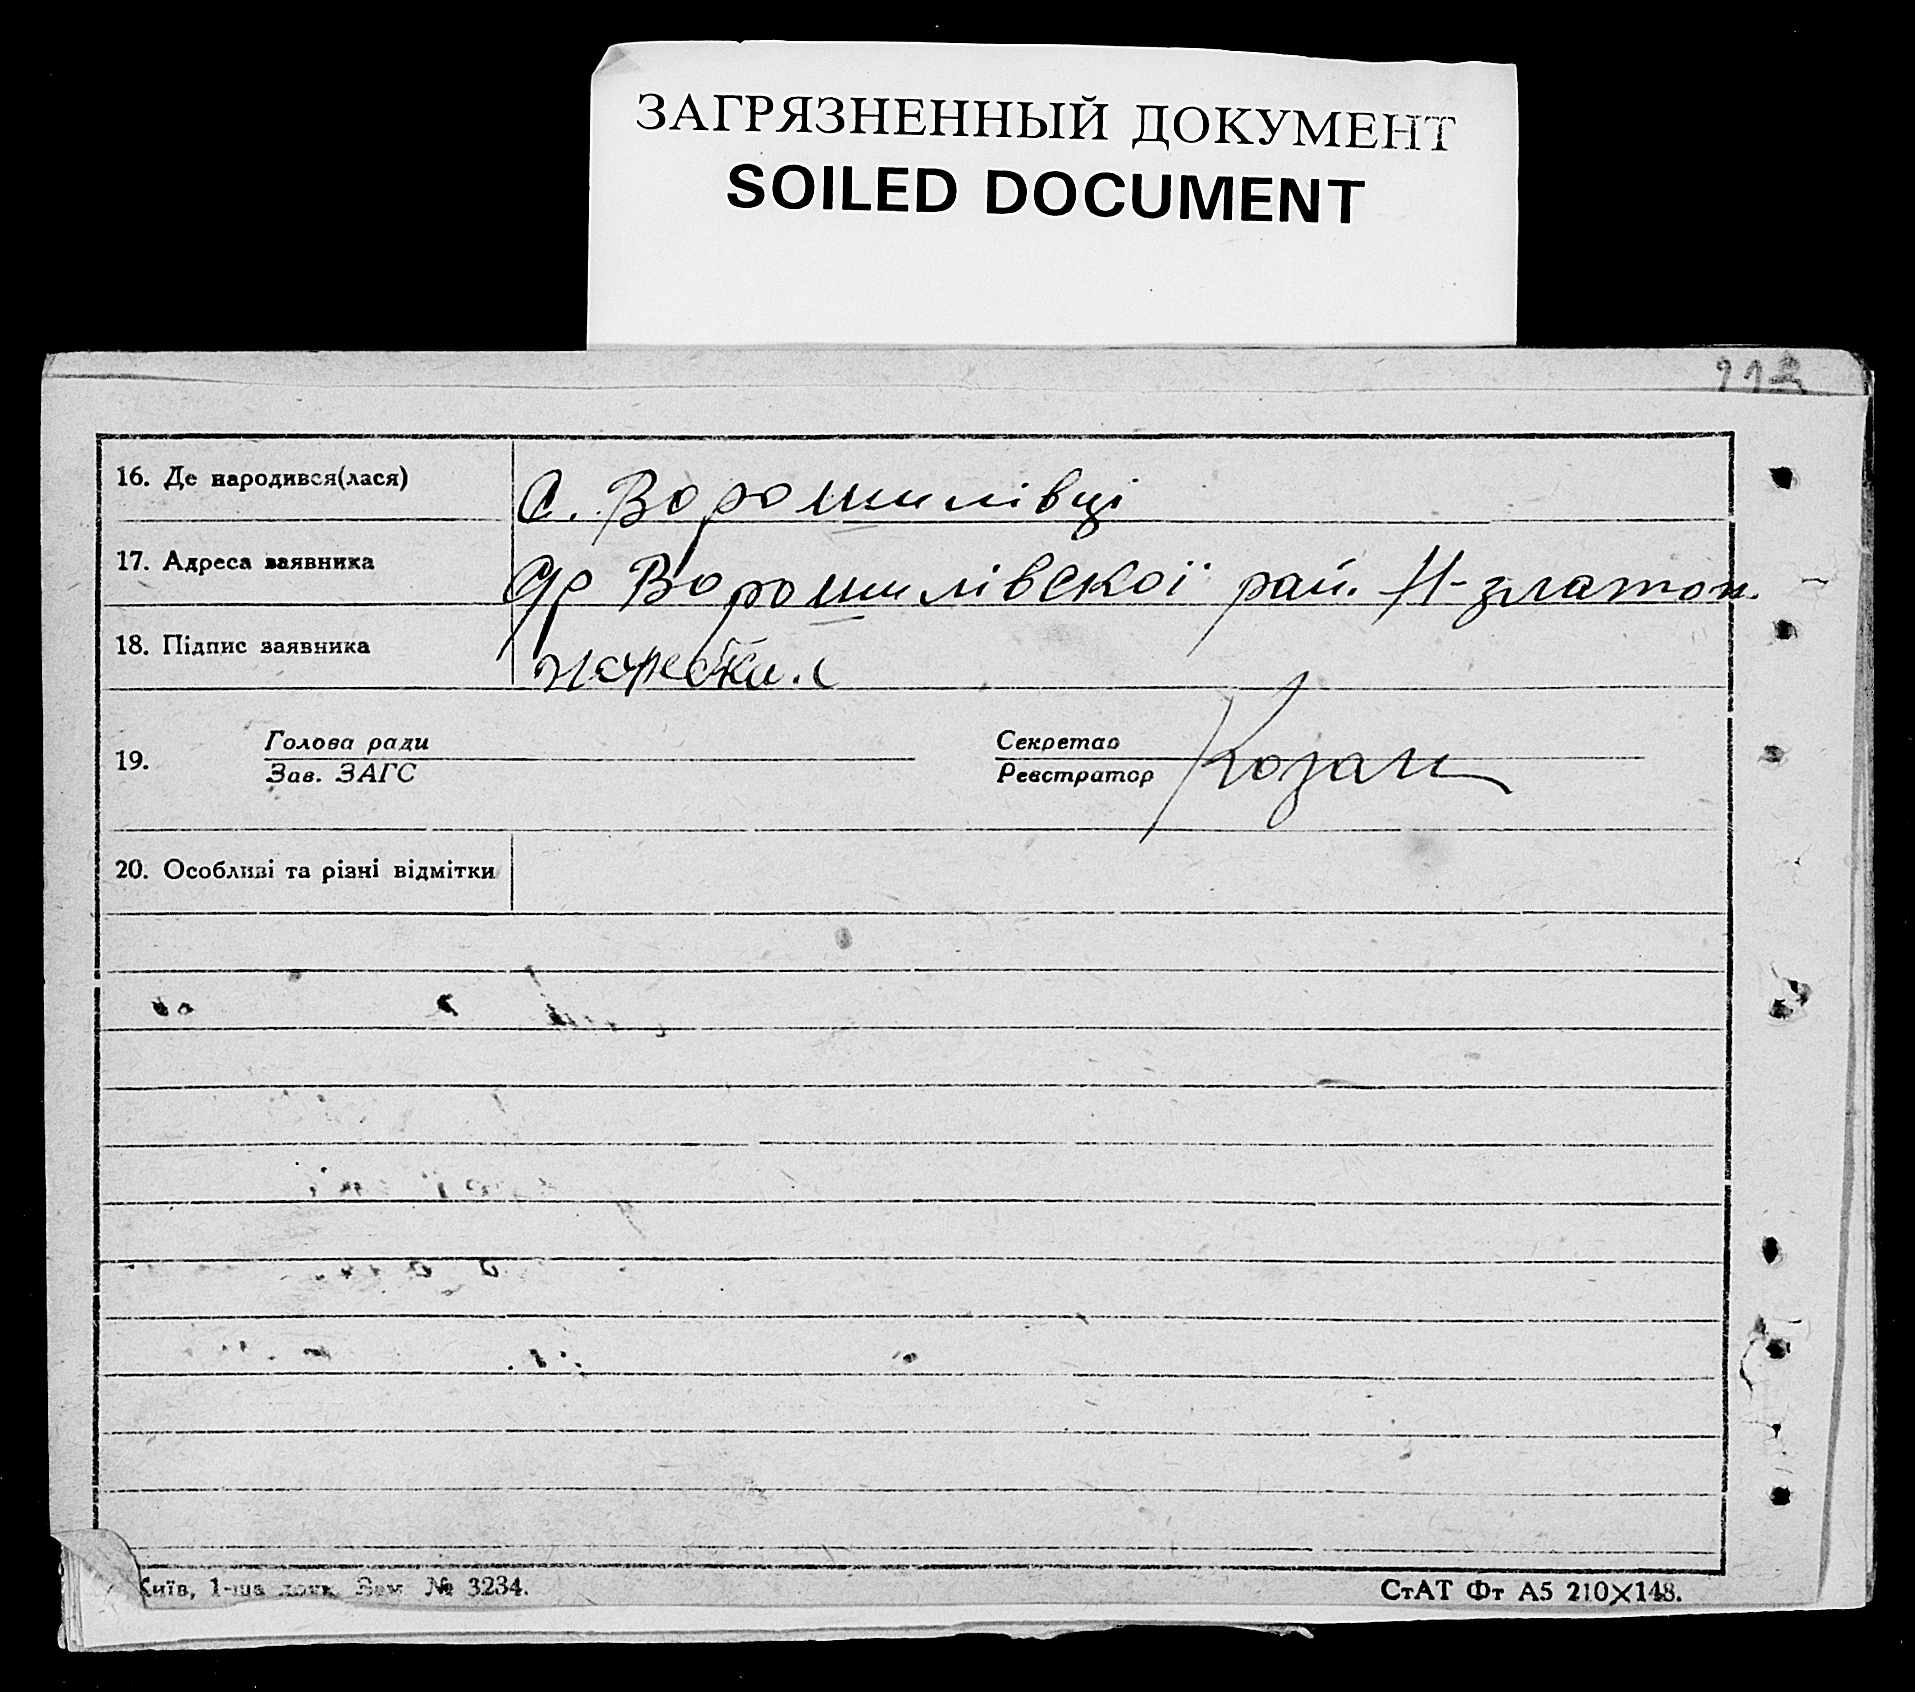 ЗАГРЯЗНЕННЫЙ ДОКУМЕНТ
SOILED DOCUMENT
113
16. Де народився(лася) С. Ворошилівці
17. Адреса заявника Ворошилівскої рай. Н-златоп.
18. Підпис заявника
19. Голова ради
Зав. ЗАГС
Секретар
Реєстратор Козак
20. Особливі та різні відмітки
Київ, 1-ша № 3234.
СтАТ Фт А5 210×148.